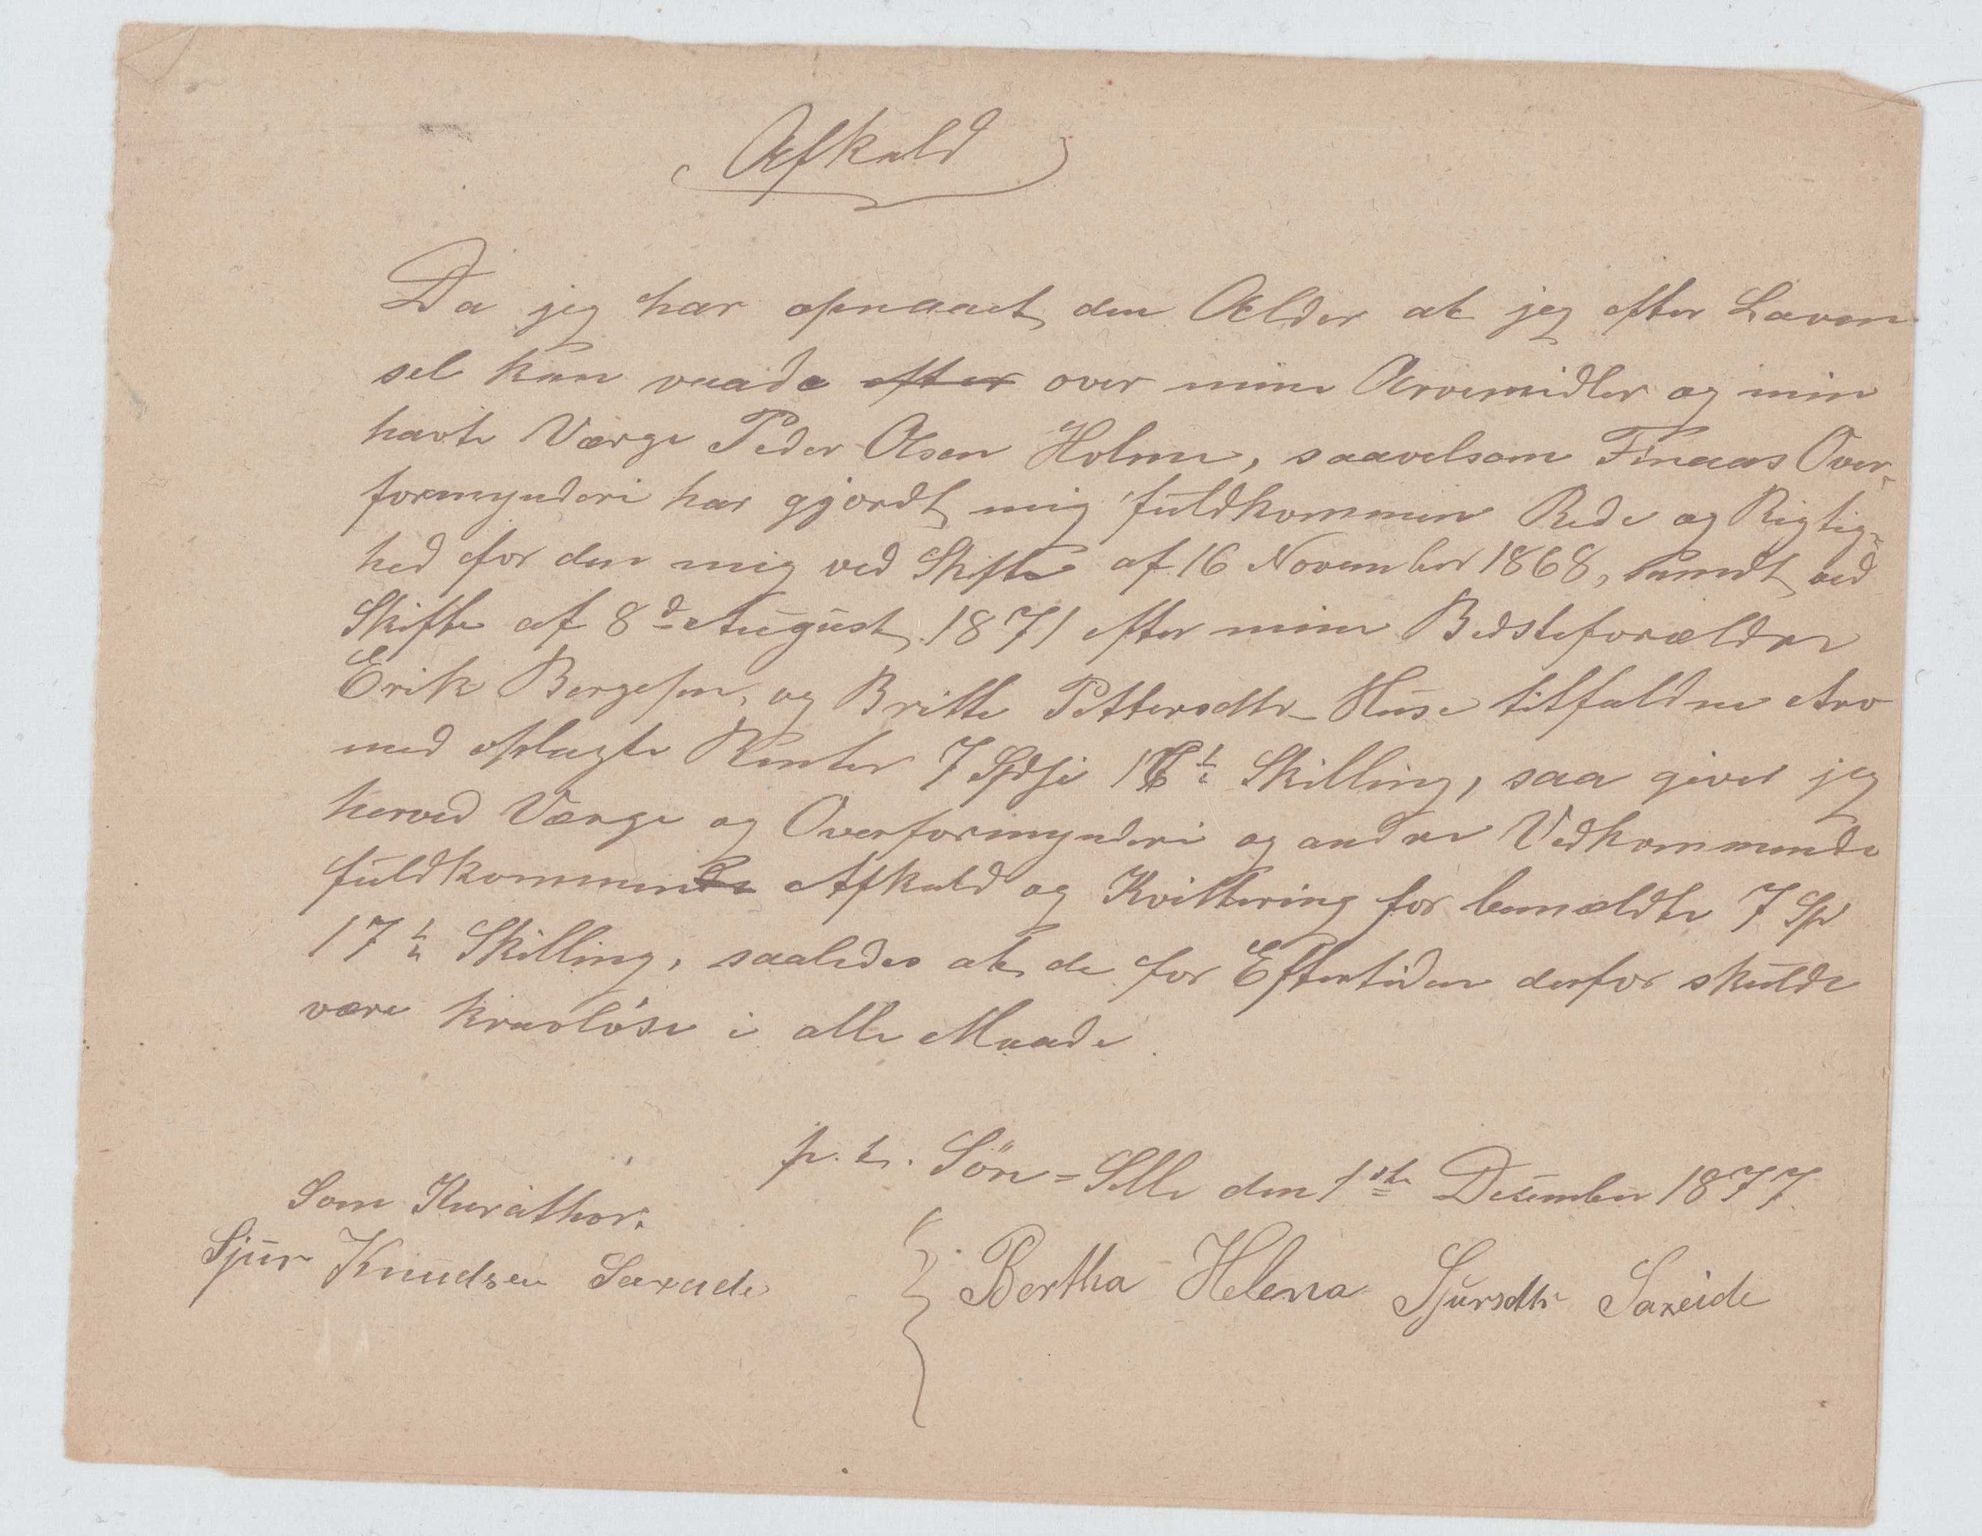 Afkald
Da jeg har opnaaet den Alder at jeg efter Loven
sel kan raade efter over mine Arvemidler og min
havte Værge Peder Olsen Holme, saavelsom Finaas Over-
formynderi har gjordt mig fuldkommen Rede og Rigtig-
hed for den mig ved Skifte af 16 November 1868, samdt ved
Skifte af 8d August 1871 efter mine Bedsteforældre
Erik Bergesen og Britte Pettersdtr Huse tilfaldne Arv
med oplagte Renter 7 Spd 17 ½ Skilling, saa giver jeg
herved Værge og Overformynderi og andre Vedkommende
fuldkommen Afkald og Kvittering for bemældte 7 Sp
17 ½ Skilling, saaledes at de for Eftertiden derfor skulde
være kravløse i alle Maade.
p. t. Sön-Selle den 1ste Desember 1877.
Som Kurathor.
Sjur Knudsen Saxade
Bertha Helena Sjursdtr Saxeide